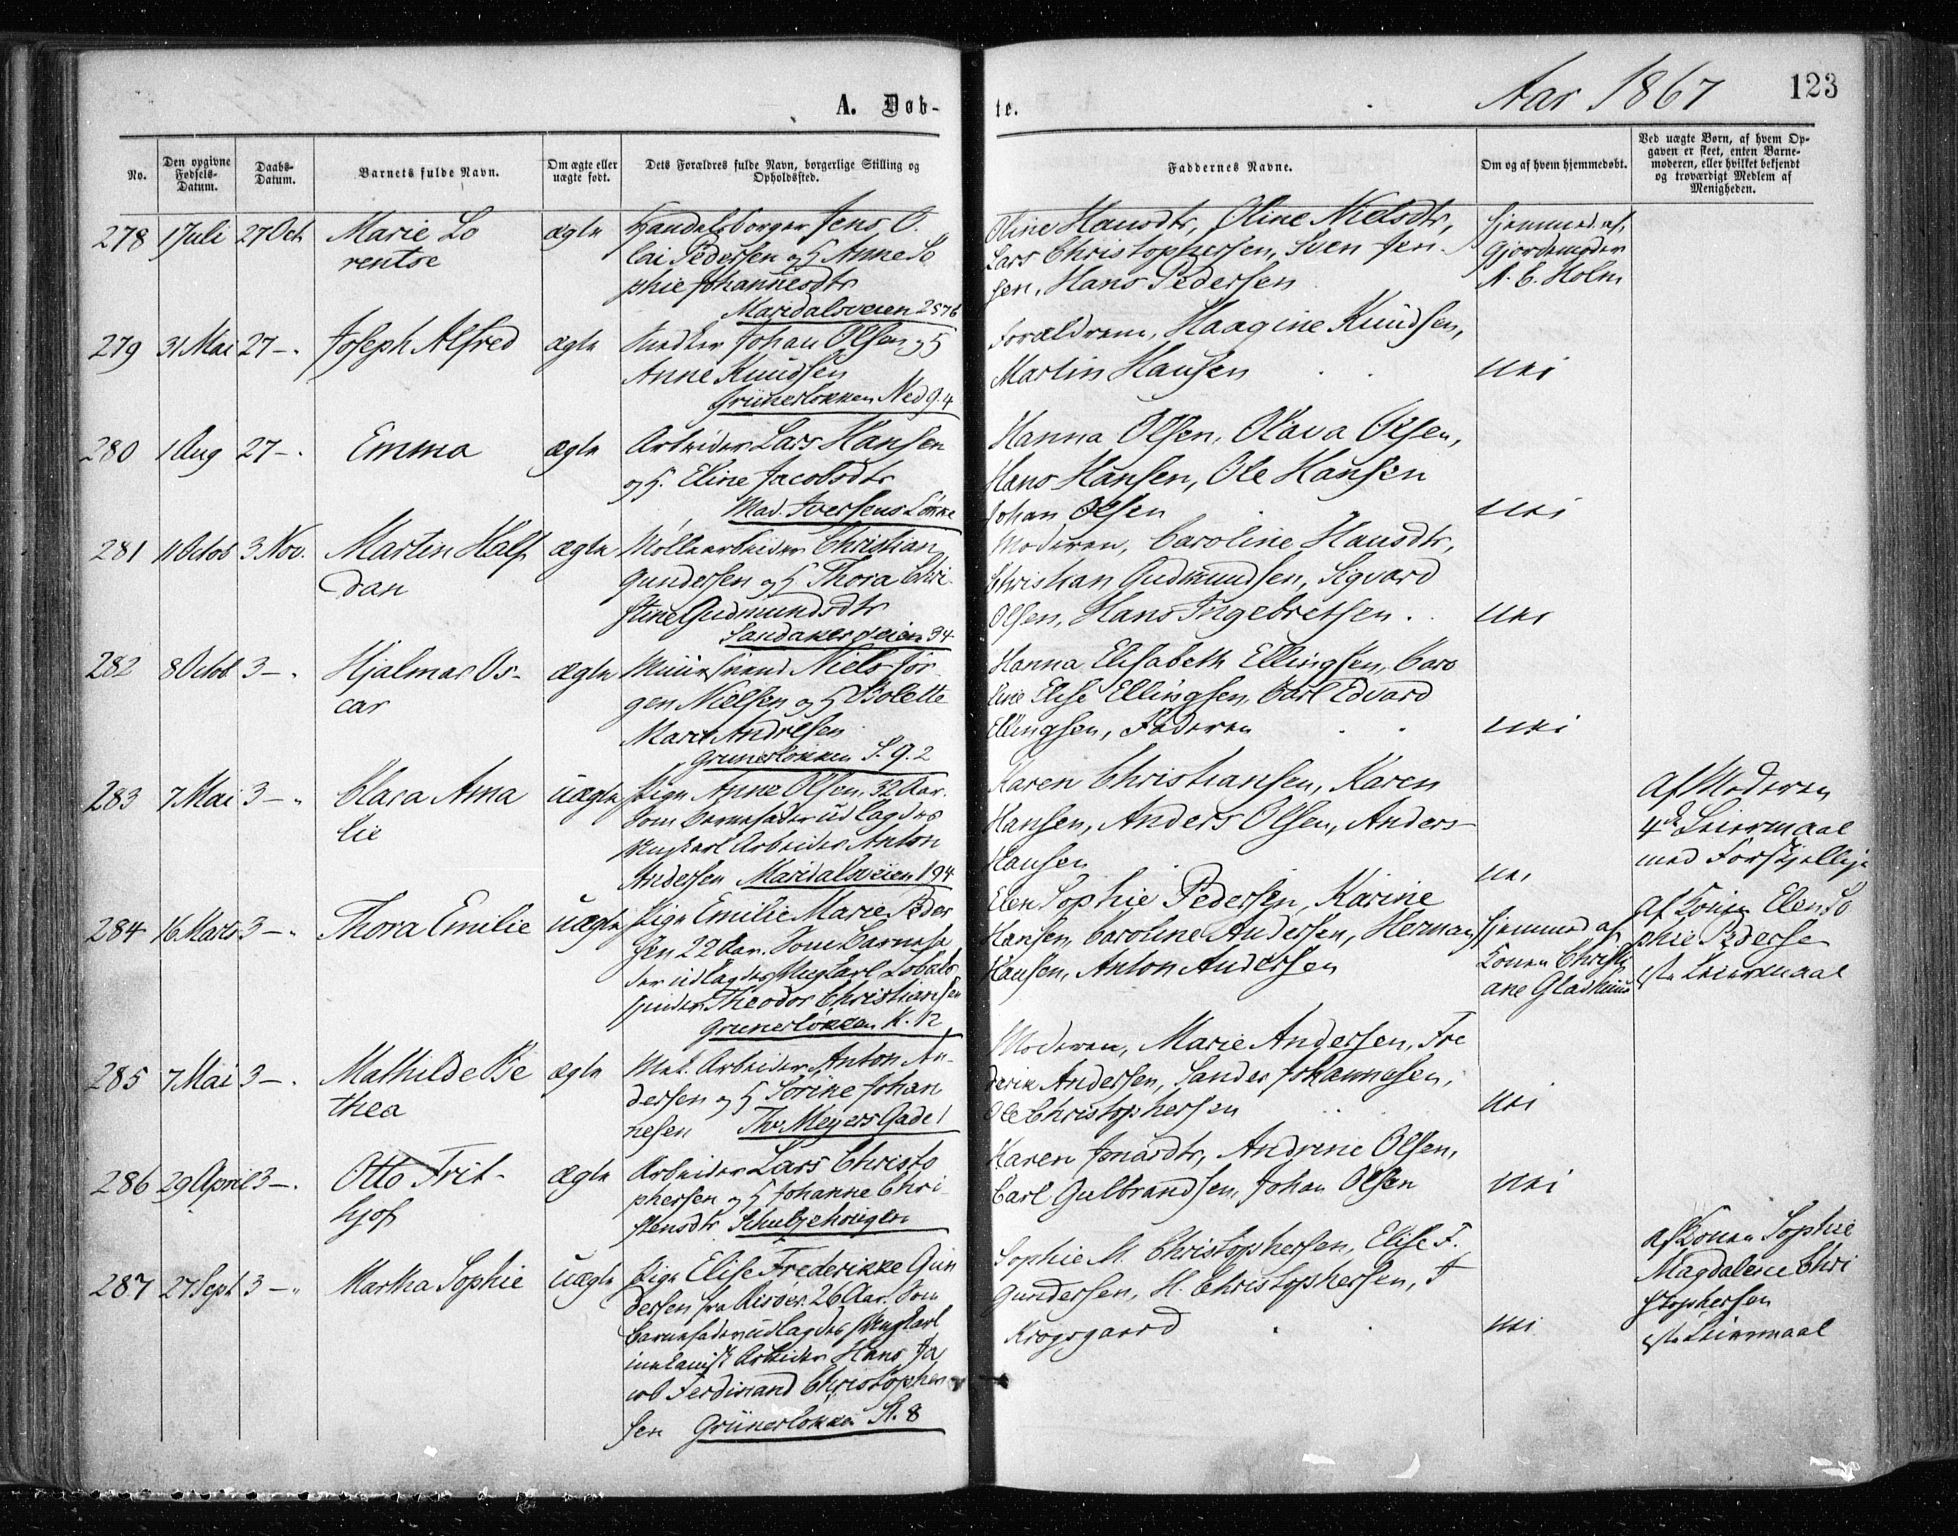 A. Døb-
te.
Aar 1867
123
No.
Den opgivne Fødsels-Datum.
Daabs-Datum.
Barnets fulde Navn.
Om ægte eller uægte født.
Dets Forældres fulde Navn, borgerlige Stilling og Opholdssted.
Faddernes Navne.
Om og af hvem hjemmedøbt.
Ved uægte Børn, af hvem Op-
gaven er skeet, enten Barne-
moderen, eller hvilket bekjendt
og troværdigt Medlem af
Menigheden.
278 1 Juli 27 Oct Marie Lo
rentse
ægte
Handelsborger Jens O.
lai Pedersen og H Anne So
phie Johannesdtr
Maridalsveien 257b
Oline Hansdtr, Oline Nielsdtr,
Lars Christophersen, Sven Jen-
sen, Hans Pedersen
Hjemmed. af
Gjordemoder
N. C. Holm
279 31 Mai 27 —. Joseph Alfred
ægte
Johan Olsen og H
Anne Knudsen
Grünerløkken Ned 9.4
Forældrene, Haagine Knudsen,
Martin Hansen
nei
280 1 Aug 27 —. Emma
ægte
Arbeider Lars Hansen
og H. Eline Jacobsdtr
Mad. Iversens Løkke
Hanna Olsen, Olava Olsen,
Hans Hansen, Ole Hansen
Johan Olsen
nei
281 11 Octob 3 Nov. Martin Half
dan
ægte
Møllearbeider Christian
Gundersen og H Thora Chri-
stine Gudmundsdtr
Sandakerveien 34
Moderen, Caroline Hansdtr,
Christian Gudmundsen, Sigvard
Olsen, Hans Ingebretsen.
nei
282 8 Octob 3 —. Hjalmar Os-
car
ægte
Muursvend Niels Jør
gen Nielsen og H Bolette
Marie Andresen
Grünerløkken S. 9. 2
Hanna Elisabeth Ellingsen, Caro
line Elise Ellingsen, Carl Edvard
Ellingsen, Faderen
nei
283 7 Mai 3 —. Clara Ama
lie
uægte
Pige Anne Olsen, 32 Aar.
Som Barnefader udlagdes
Ungkarl Arbeider Anton
Andersen Maridalsveien 194
Karen Christiansen, Karen
Hansen, Anders Olsen, Anders
Hansen
nei
Af Moderen
4de Leiermaal
med Forskjellige
284 16 Marts 3 —. Thora Emilie
uægte
Pige Emilie Marie Peder
sen 22 Aar. Som Barnefa
der udlagdes Ungkarl Tobaks
spinder Theodor Christiansen
Grünerløkken K. 12
Elen Sophie Pedersen, Karine
Hansen, Caroline Andersen, Herman
Hansen, Anton Andersen
Hjemmed af
Konen Christi
ane
af Konen Elen So
phie Pederse
1ste Leiermaal
285 7 Mai 3 —. Mathilde Be
thea
ægte
Mek. Arbeider Anton An-
dersen og H Sorine Johan
nesen Thv Meyers Gade 1
Moderen, Marie Andersen, Fre
derik Andersen, Sander Johannesen,
Ole Christophersen
nei
286 29 April 3 —. Otto Frit-
hjof
ægte
Arbeider Lars Christo
phersen og H Johanne Chri-
stensdtr Schultzehougen
Karen Jonasdtr, Andrine Olsen,
Carl Gulbrandsen, Johan Olsen
nei
287 27 Sept 3 —. Martha Sophie
uægte
Pige Elise Frederikke Gun
dersen fra Risøer. 26 Aar. Som
Barnefader udlagdes Ungkarl
mekanisk Arbeider Hans Ja
cob Ferdinand Christopher
sen Grünerløkken St. 8
Sophie M. Christophersen, Elise F.
Gundersen, H. Christophersen, F
Krogsgaard
nei
af Konen Sophie
Magdalene Chri
stophersen
1ste Leiermaal